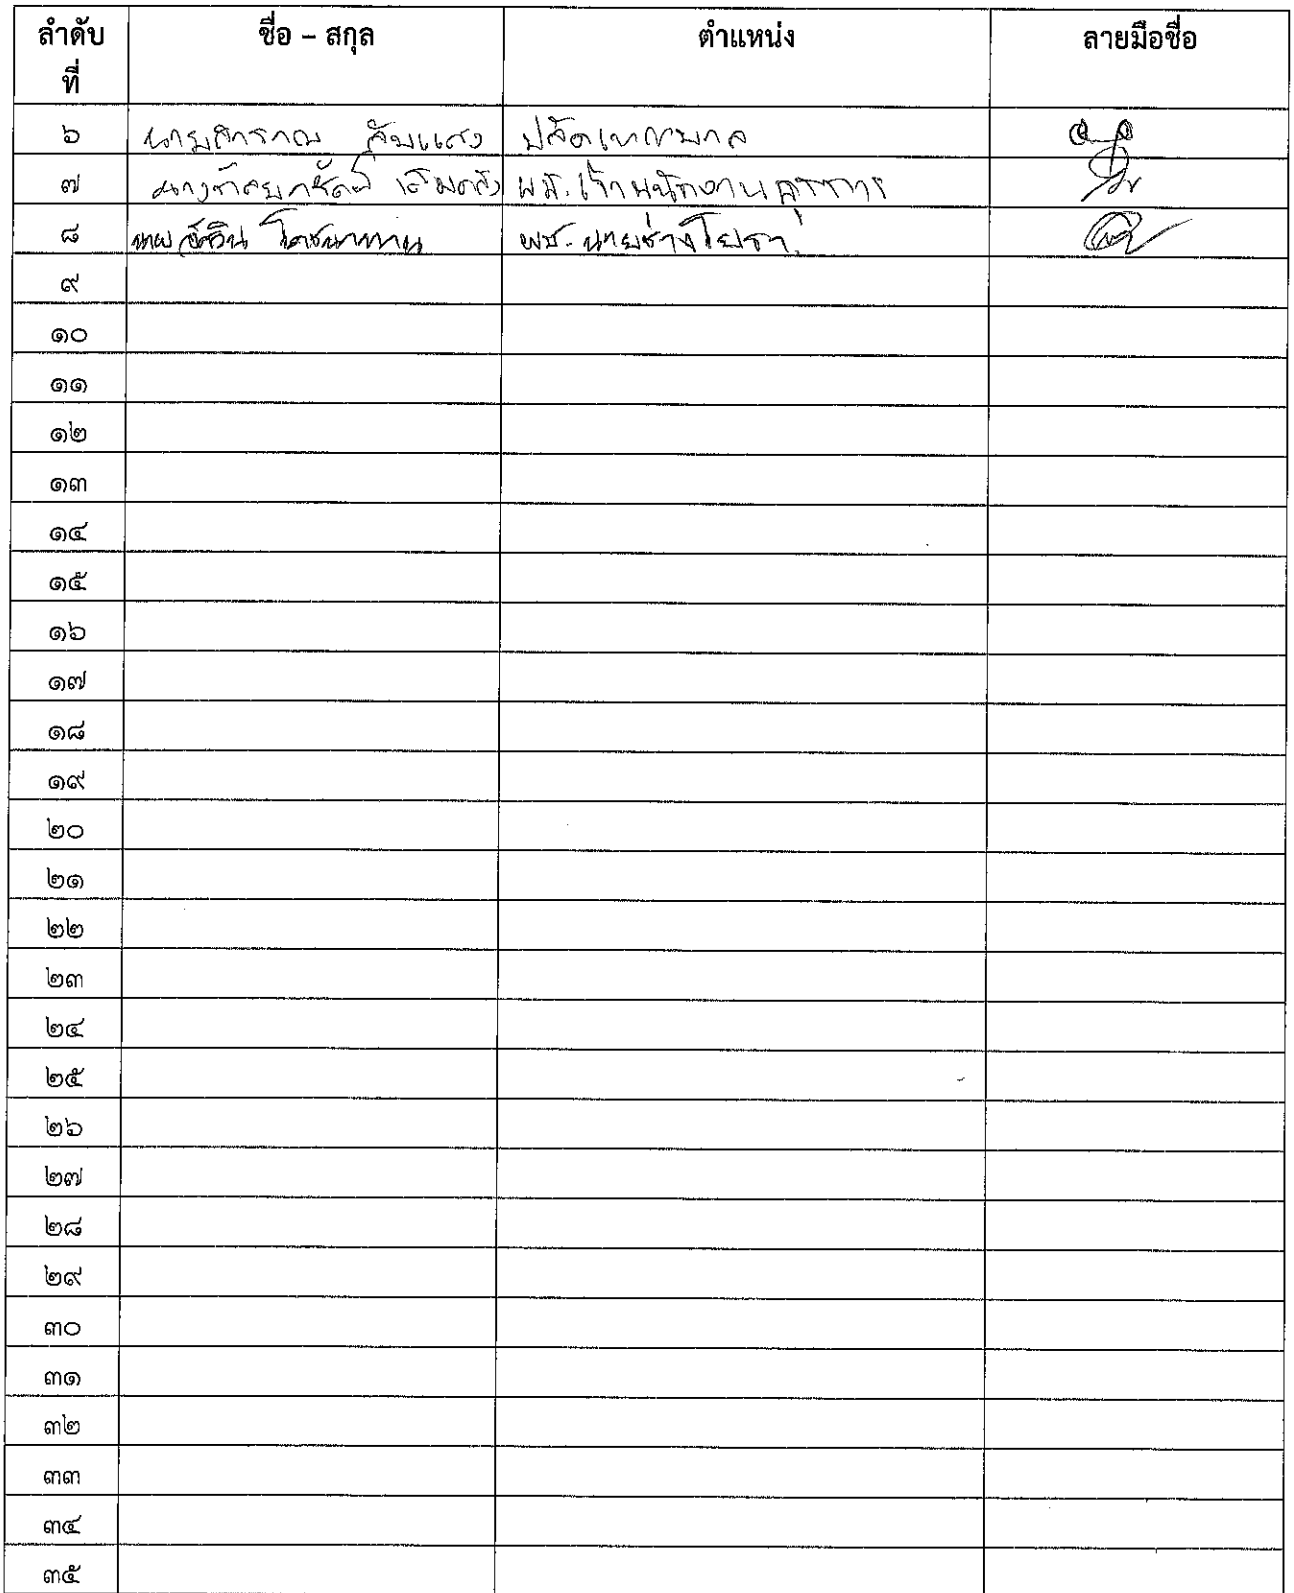 ลำดับ ชื่อ – สกุล ตำแหน่ง ลายมือชื่อ
ที่
๖ นายสำราญ ปลัดเทศบาล
๗ นาง ผช.เจ้าพนักงานธุรการ
๘ นายอัศวิน โคชนาทาน ผช.นายช่างโยธา
๙
๑๐
๑๑
๑๒
๑๓
๑๔
๑๕
๑๖
๑๗
๑๘
๑๙
๒๐
๒๑
๒๒
๒๓
๒๔
๒๕
๒๖
๒๗
๒๘
๒๙
๓๐
๓๑
๓๒
๓๓
๓๔
๓๕